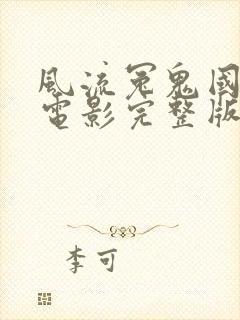 風流冤鬼國
電影完整版
李可